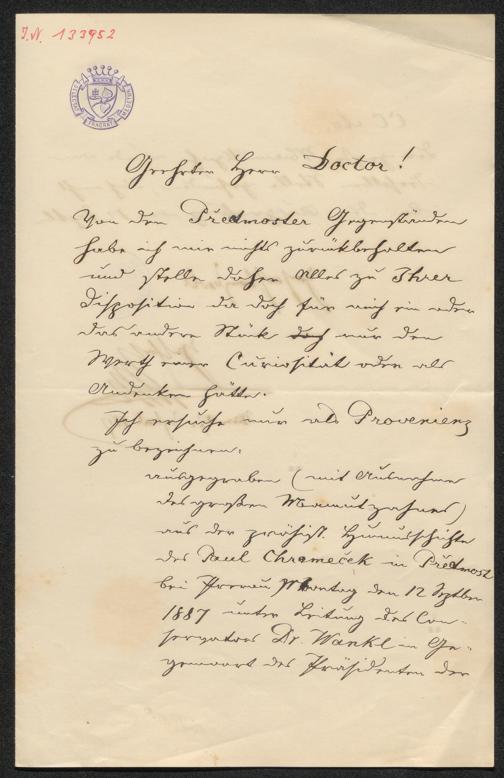 J.N. 133952
Geehrter Herr Doctor!
Von den Předmoster Gegenständen
habe ich mir nichts zurückbehalten
und stelle daher Alles zu Ihrer
Disposition da doch für mich ein oder
das andere Stück doch nur den
Werth einer Curiosität oder als
Andenken hätte.
Ich ersuche nur als Provenienz
zu bezeichnen:
ausgegraben (mit Ausnahme
des großen Mamutzahnes)
aus der prähist. Humusschichte
des Paul Chrameček in Předmost
bei Prerau Montag den 12 Septber
1887 unter Leitung des Con-
servators Dr. Wankl in Ge-
genwart des Präsidenten der